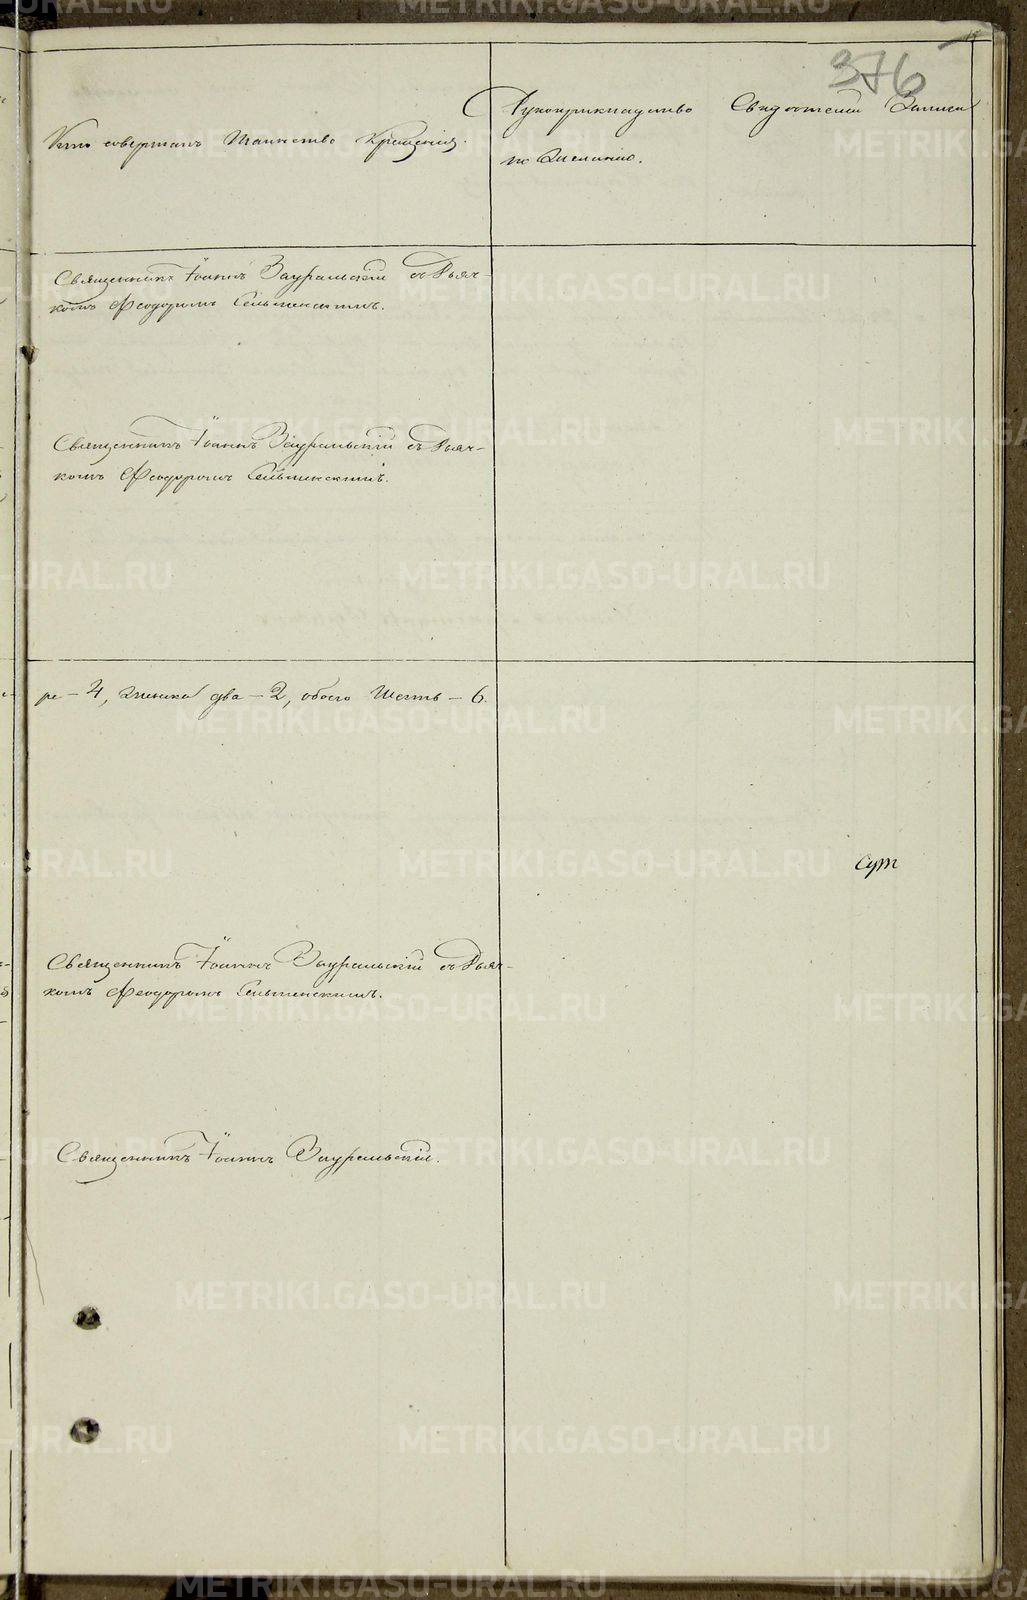 376
Кто совершалъ Таинство Крещенія.
Рукоприкладство Свидѣтелей Записи
по желанію.
Священникъ Іоаннъ Зауральскій съ Дьяч-
комъ Феодоромъ
Священникъ Іоаннъ Зауральскій съ Дьяч-
комъ Феодоромъ
ре – 4, женска два – 2, обоего Шесть – 6.
Священникъ Іоаннъ Зауральскій съ Дьяч-
комъ Феодоромъ
Священникъ Іоаннъ Зауральскій.
METRIKI.GASO-URAL.RU